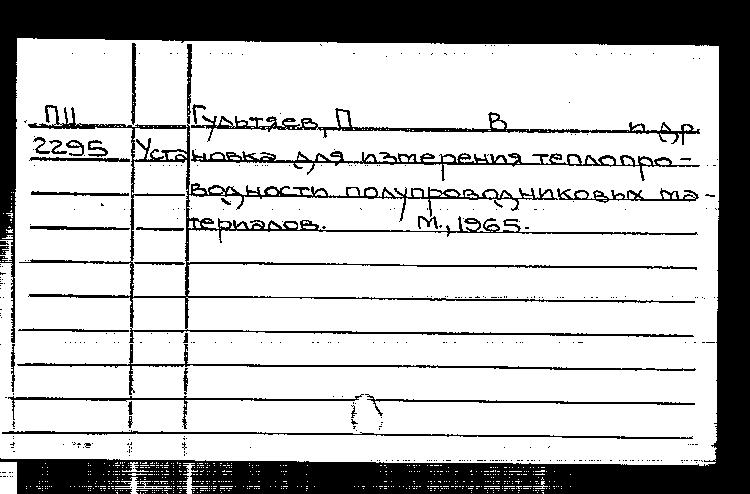 ПII Гультяев, П В и др.
2295 Установка для измерения теплопро-
водности полупроводниковых ма-
териалов. М., 1965.